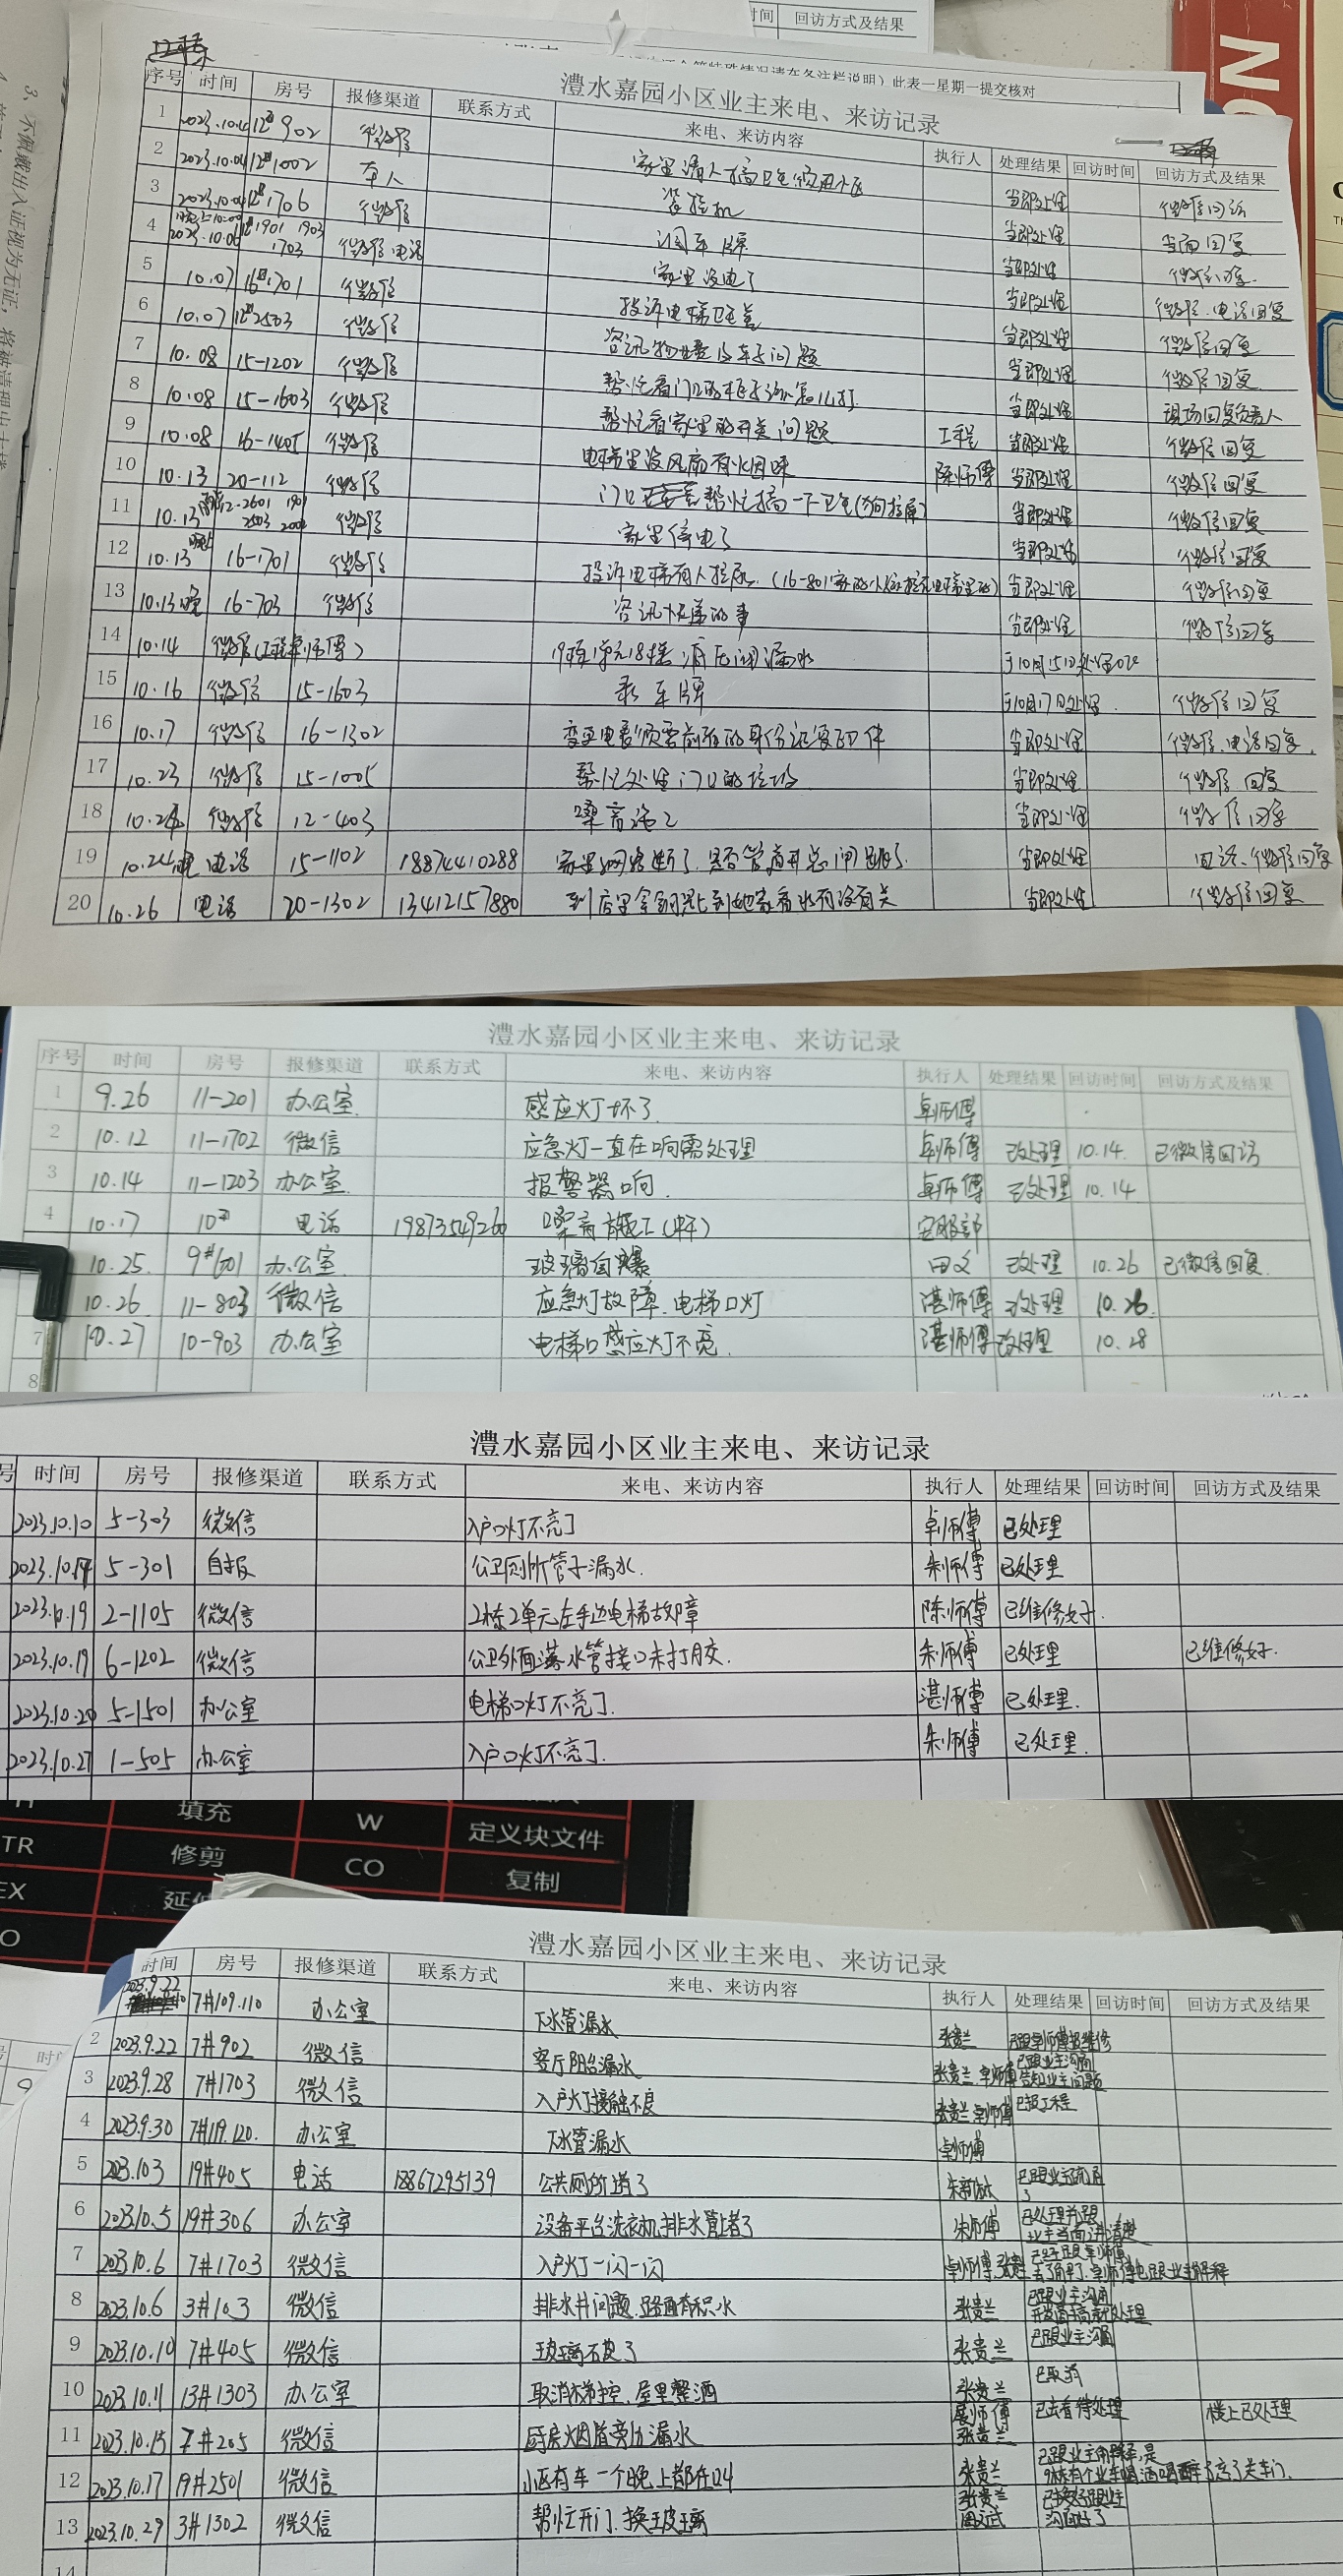 时间 回访方式及结果
此表一星期一提交核对
3、不佩戴出入证视为无证，将被清理出
澧水嘉园小区业主来电、来访记录
序号 时间 房号 报修渠道 联系方式 来电、来访内容 执行人 处理结果 回访时间 回访方式及结果
1 2023.10.4 12# 902 微信 当即处理 微信回访
2 2023.10.04 12# 1002 本人 装挂机 当即处理 当面回复
3 2023.10.04 12# 1706 微信 当即处理 微信回复.
4 2023.10.06 1901 1903 1703 微信 电话 家里没电了 当即处理 微信. 电话回复
5 10.07 16# 1701 微信 投诉电梯卫生差 当即处理 微信回复
6 10.07 12# 2503 微信 当即处理 微信回复
7 10.08 15-1202 微信 当即处理 现场回复负责人
8 10.08 15-1603 微信 帮忙看家里的开关问题 工程 当即处理 微信回复
9 10.08 16-1405 微信 电梯里没风扇有水因味 陈师傅 当即处理 微信回复
10 10.13 20-112 微信 门口 帮忙搞一下卫生(狗拉屎) 当即处理 微信回复
11 10.13 12-2601 1901 2503 2004 微信 家里停电了 当即处理 微信回复
12 10.13 晚上 16-1701 微信 投诉电梯有人拉尿. 当即处理 微信回复
13 10.13晚 16-703 微信 当即处理 微信回复
14 10.14 微信 漏水 于10月15日处理
15 10.16 微信 15-1603 录车牌 于10月17日处理. 微信回复
16 10.17 微信 16-1302 身份证复印件 当即处理 微信. 电话回复.
17 10.23 微信 15-1005 帮忙处理门口的垃圾 当即处理 微信 回复
18 10.24 微信 12-403 噪音施工 当即处理 微信回复
19 10.24晚 电话 15-1102 18874410288 当即处理 电话、微信回复
20 10.26 电话 20-1302 13412157880 到店里拿钥匙到她家看水有没有关 当即处理 微信回复
澧水嘉园小区业主来电、来访记录
序号 时间 房号 报修渠道 联系方式 来电、来访内容 执行人 处理结果 回访时间 回访方式及结果
1 9.26 11-201 办公室. 感应灯坏了. 卓师傅
2 10.12 11-1702 微信 应急灯一直在响需处理 卓师傅 已处理 10.14. 已微信回访
3 10.14 11-1203 办公室. 报警器响. 卓师傅 已处理 10.14
4 10.17 10# 电话 噪音施工(中午) 客服部
10.25. 9#601 办公室. 玻璃自爆 田文 已处理 10.26 已微信回复.
10.26 11-803 微信 应急灯故障. 电梯口灯 湛师傅 已处理 10.26.
7 10.27 10-903 办公室 电梯口感应灯不亮. 湛师傅 已处理 10.28
8
澧水嘉园小区业主来电、来访记录
号 时间 房号 报修渠道 联系方式 来电、来访内容 执行人 处理结果 回访时间 回访方式及结果
2023.10.10 5-303 微信 入户口灯不亮了 卓师傅 已处理
2023.10.14 5-301 自报 公卫厕所管子漏水. 朱师傅 已处理
2023.10.19 2-1105 微信 2栋2单元左手边电梯故障 陈师傅 已维修好.
2023.10.19 6-1202 微信 公卫外面落水管接口未打胶. 朱师傅 已处理 已维修好.
2023.10.20 5-1501 办公室 电梯口灯不亮了. 湛师傅 已处理.
2023.10.27 1-505 办公室 入户口灯不亮了. 朱师傅 已处理.
填充 W 定义块文件
TR 修剪 CO 复制
EX 延伸
澧水嘉园小区业主来电、来访记录
时间 房号 报修渠道 联系方式 来电、来访内容 执行人 处理结果 回访时间 回访方式及结果
2023.9.22 7#109.110 办公室 下水管漏水 张贵兰 已跟卓师傅报维修
2 2023.9.22 7#902 微信 客厅阳台漏水 张贵兰. 卓师傅 已跟业主沟通 告知业主问题
3 2023.9.28 7#1703 微信 入户灯接触不良 张贵兰 卓师傅 已报工程
4 2023.9.30 7#119.120. 办公室 下水管漏水 卓师傅
5 2023.10.3 19#405 电话 18867295139 公共厕所堵了 已跟业主沟通了
6 2023.10.5 19#306 办公室 设备平台洗衣机排水管堵了 朱师傅 已处理并跟业主当面讲清楚
7 2023.10.6 7#1703 微信 入户灯一闪一闪 卓师傅.张贵兰 卓师傅已跟业主解释
8 2023.10.6 3#103 微信 排水井问题. 路面有积水 张贵兰 已跟业主沟通
9 2023.10.10 7#405 微信 玻璃不见了 张贵兰 已跟业主沟通
10 2023.10.11 13#1303 办公室 取消梯控. 屋里整酒 张贵兰 已取消
11 2023.10.15 7#205 微信 厨房烟道旁边漏水 张贵兰 已去看待处理 楼上已处理
12 2023.10.17 19#2501 微信 小区有车一个晚上都在叫 张贵兰 已跟业主解释,是9栋有个业主喝酒喝醉了忘了关车门.
13 2023.10.29 3#1302 微信 帮忙开门. 换玻璃 张贵兰 周文武 已换好跟业主沟通好了
14